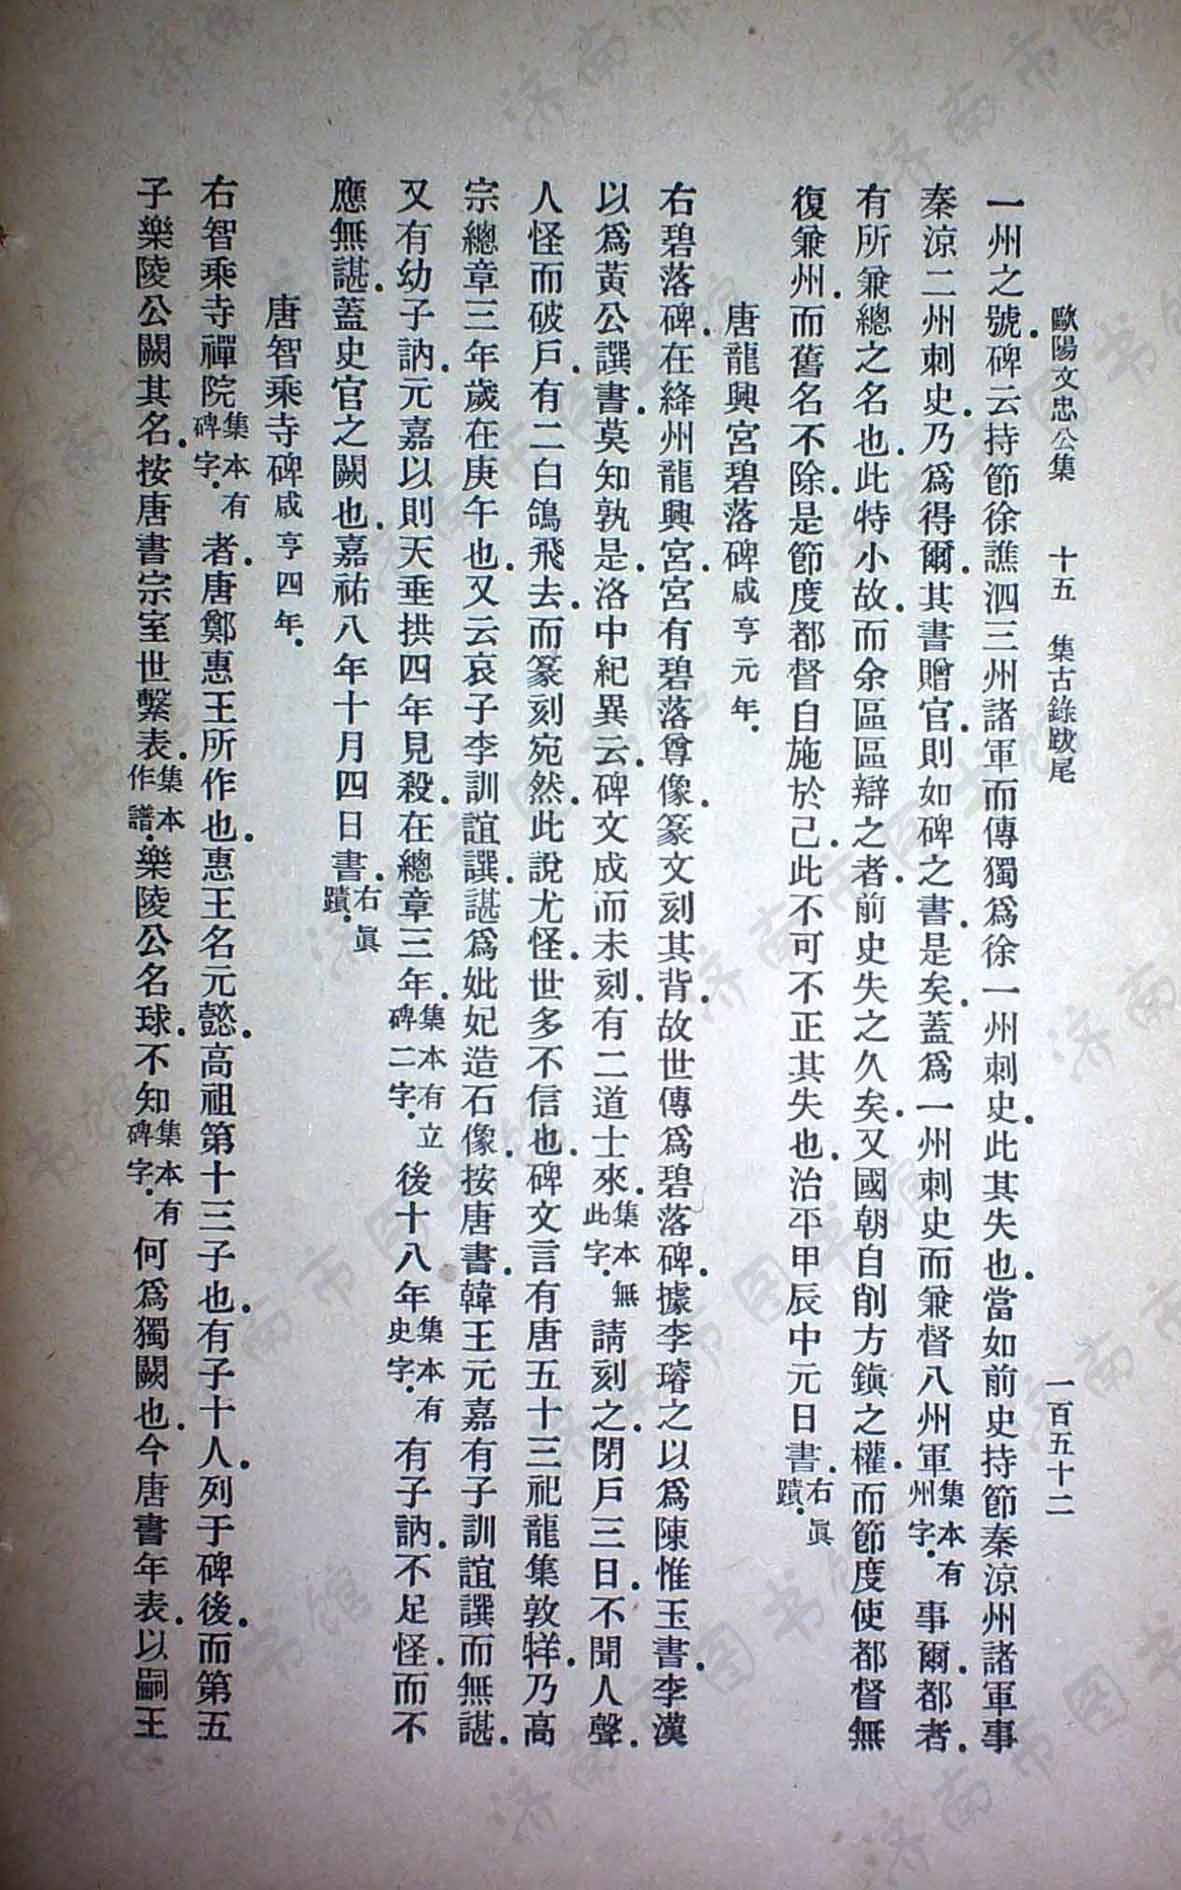 歐陽文忠公集　十五　集古錄跋尾　一百五十二
一州之號.碑云持節徐譙泗三州諸軍而傳獨爲徐一州刺史.此其失也.當如前史持節秦涼州諸軍事
秦涼二州刺史.乃爲得爾.其書贈官.則如碑之書.是矣.蓋爲一州刺史而兼督八州軍集本有州字.事爾.都者.
有所兼總之名也.此特小故.而余區區辯之者.前史失之久矣.又國朝自削方鎮之權.而節度使都督無
復兼州.而舊名不除.是節度都督自施於己.此不可不正其失也.治平甲辰中元日書.右眞蹟.
唐龍興宮碧落碑咸亨元年.
右碧落碑.在絳州龍興宮.宮有碧落尊像.篆文刻其背.故世傳爲碧落碑.據李璿之以爲陳惟玉書.李漢
以爲黃公譔書.莫知孰是.洛中紀異云.碑文成而未刻.有二道士來.集本無此字.請刻之.閉戶三日.不聞人聲.
人怪而破戶.有二白鴿飛去.而篆刻宛然.此說尤怪.世多不信也.碑文言有唐五十三祀.龍集敦牂.乃高
宗總章三年歲在庚午也.又云哀子李訓誼譔.諶爲妣妃造石像.按唐書.韓王元嘉有子訓誼譔而無諶.
又有幼子訥.元嘉以則天垂拱四年見殺.在總章三年.集本有立碑二字.後十八年集本有史字.有子訥.不足怪.而不
應無諶.蓋史官之闕也.嘉祐八年十月四日書.右眞蹟.
唐智乘寺碑咸亨四年.
右智乘寺禪院集本有碑字.者.唐鄭惠王所作也.惠王名元懿.高祖第十三子也.有子十人.列于碑後.而第五
子樂陵公闕其名.按唐書宗室世繫表.集本作譜.樂陵公名球.不知集本有碑字.何爲獨闕也.今唐書年表.以嗣王